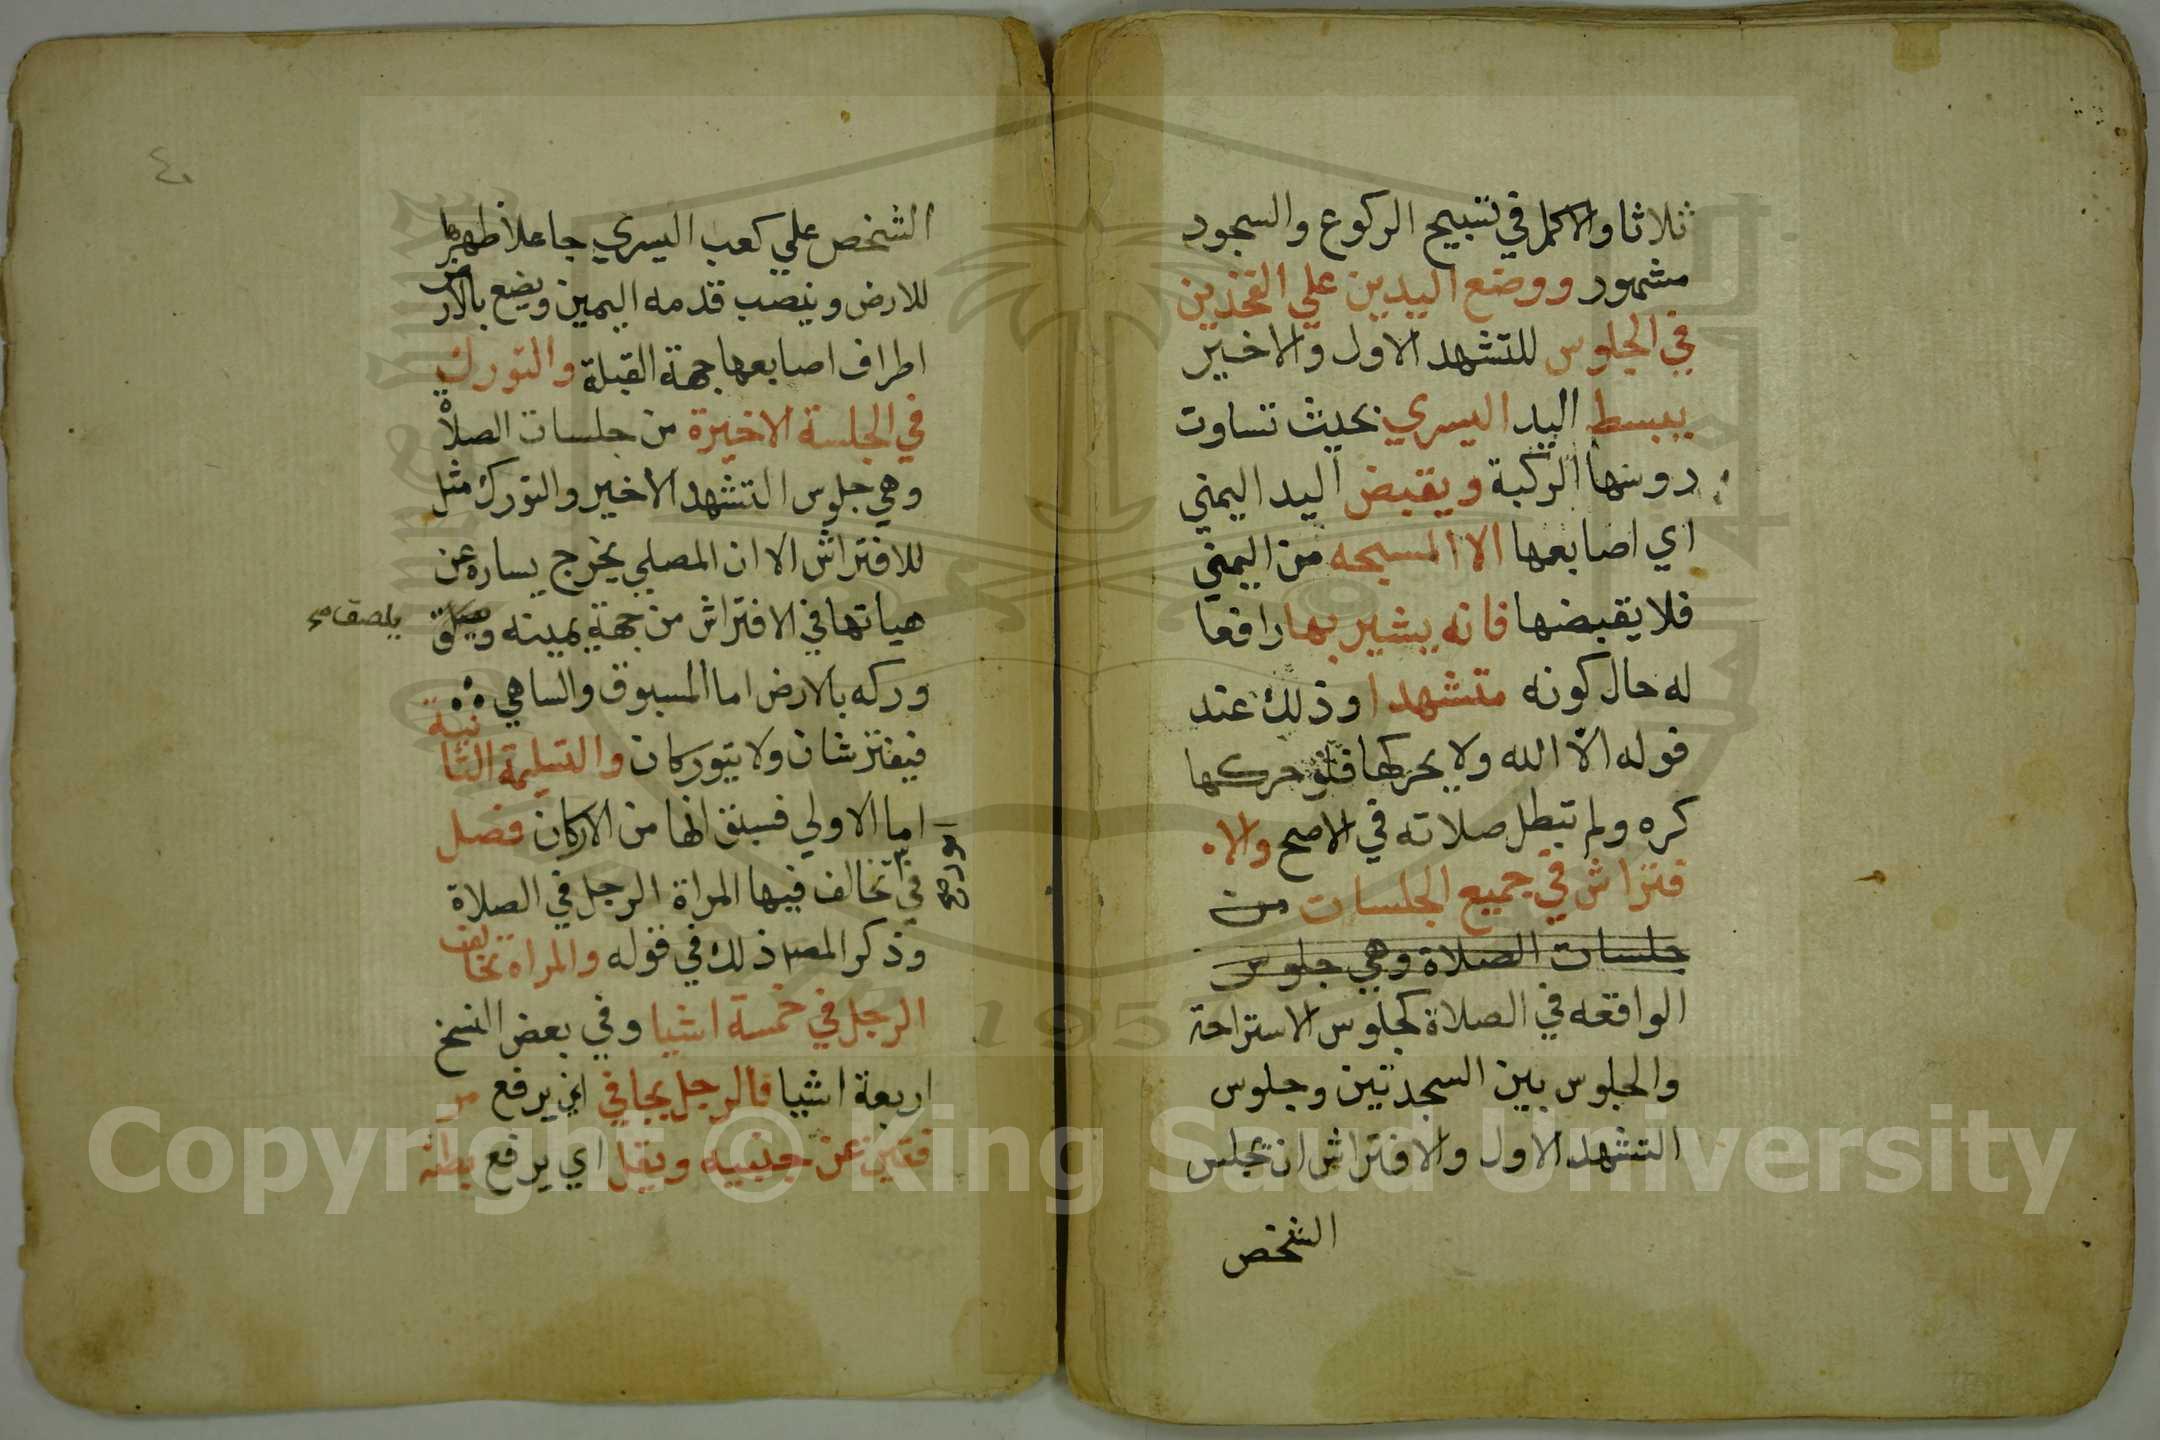 ثلاثا والاكمل في تسبيح الركوع والسجود
مشهور ووضع اليدين علي الفخذين
في الجلوس للتشهد الاول والاخير
يبسط اليد اليسري بحيث تساوت
روسها الركبة ويقبض اليد اليمني
اي اصابعها الا المسبحه من اليمني
فلا يقبضها فانه يشير بها رافعا
له حال كونه متشهدا وذلك عند
قوله الا الله ولا يحركها فلو حركها
كره ولم تبطل صلاته في الاصح والا
فتراش في جميع الجلسات من
جلسات الصلاة وهي جلوس
الواقعه في الصلاة كجلوس الاستراحة
والجلوس بين السجدتين وجلوس
التشهد الاول والافتراش ان يجلس
الشخص
الشخص علي كعب اليسري جاعلا ظهرها
للارض وينصب قدمه اليمين ويضع بالارض
اطراف اصابعها جهة القبلة والتورك
في الجلسة الاخيرة من جلسات الصلاة
وهي جلوس التشهد الاخير والتورك مثل
للافتراش الا ان المصلي يخرج يساره عن
هياتها في الافتراش من جهة يمينه
يلصق صح
وركه بالارض اما المسبوق والساهي
فيفترشان ولا يتوركان والتسليمة الثانية
اما الاولي فسبق انها من الاركان فصل
في تخالف فيها المراة الرجل في الصلاة
وذكر المص ذلك في قوله والمراه تخالف
الرجل في خمسة اشيا وفي بعض النسخ
اربعة اشيا فالرجل يجافي اي يرفع مر
فقيه عن جنبيه ويقل اي يرفع بطنه
٤٠
Copyright © King Saud University
1957